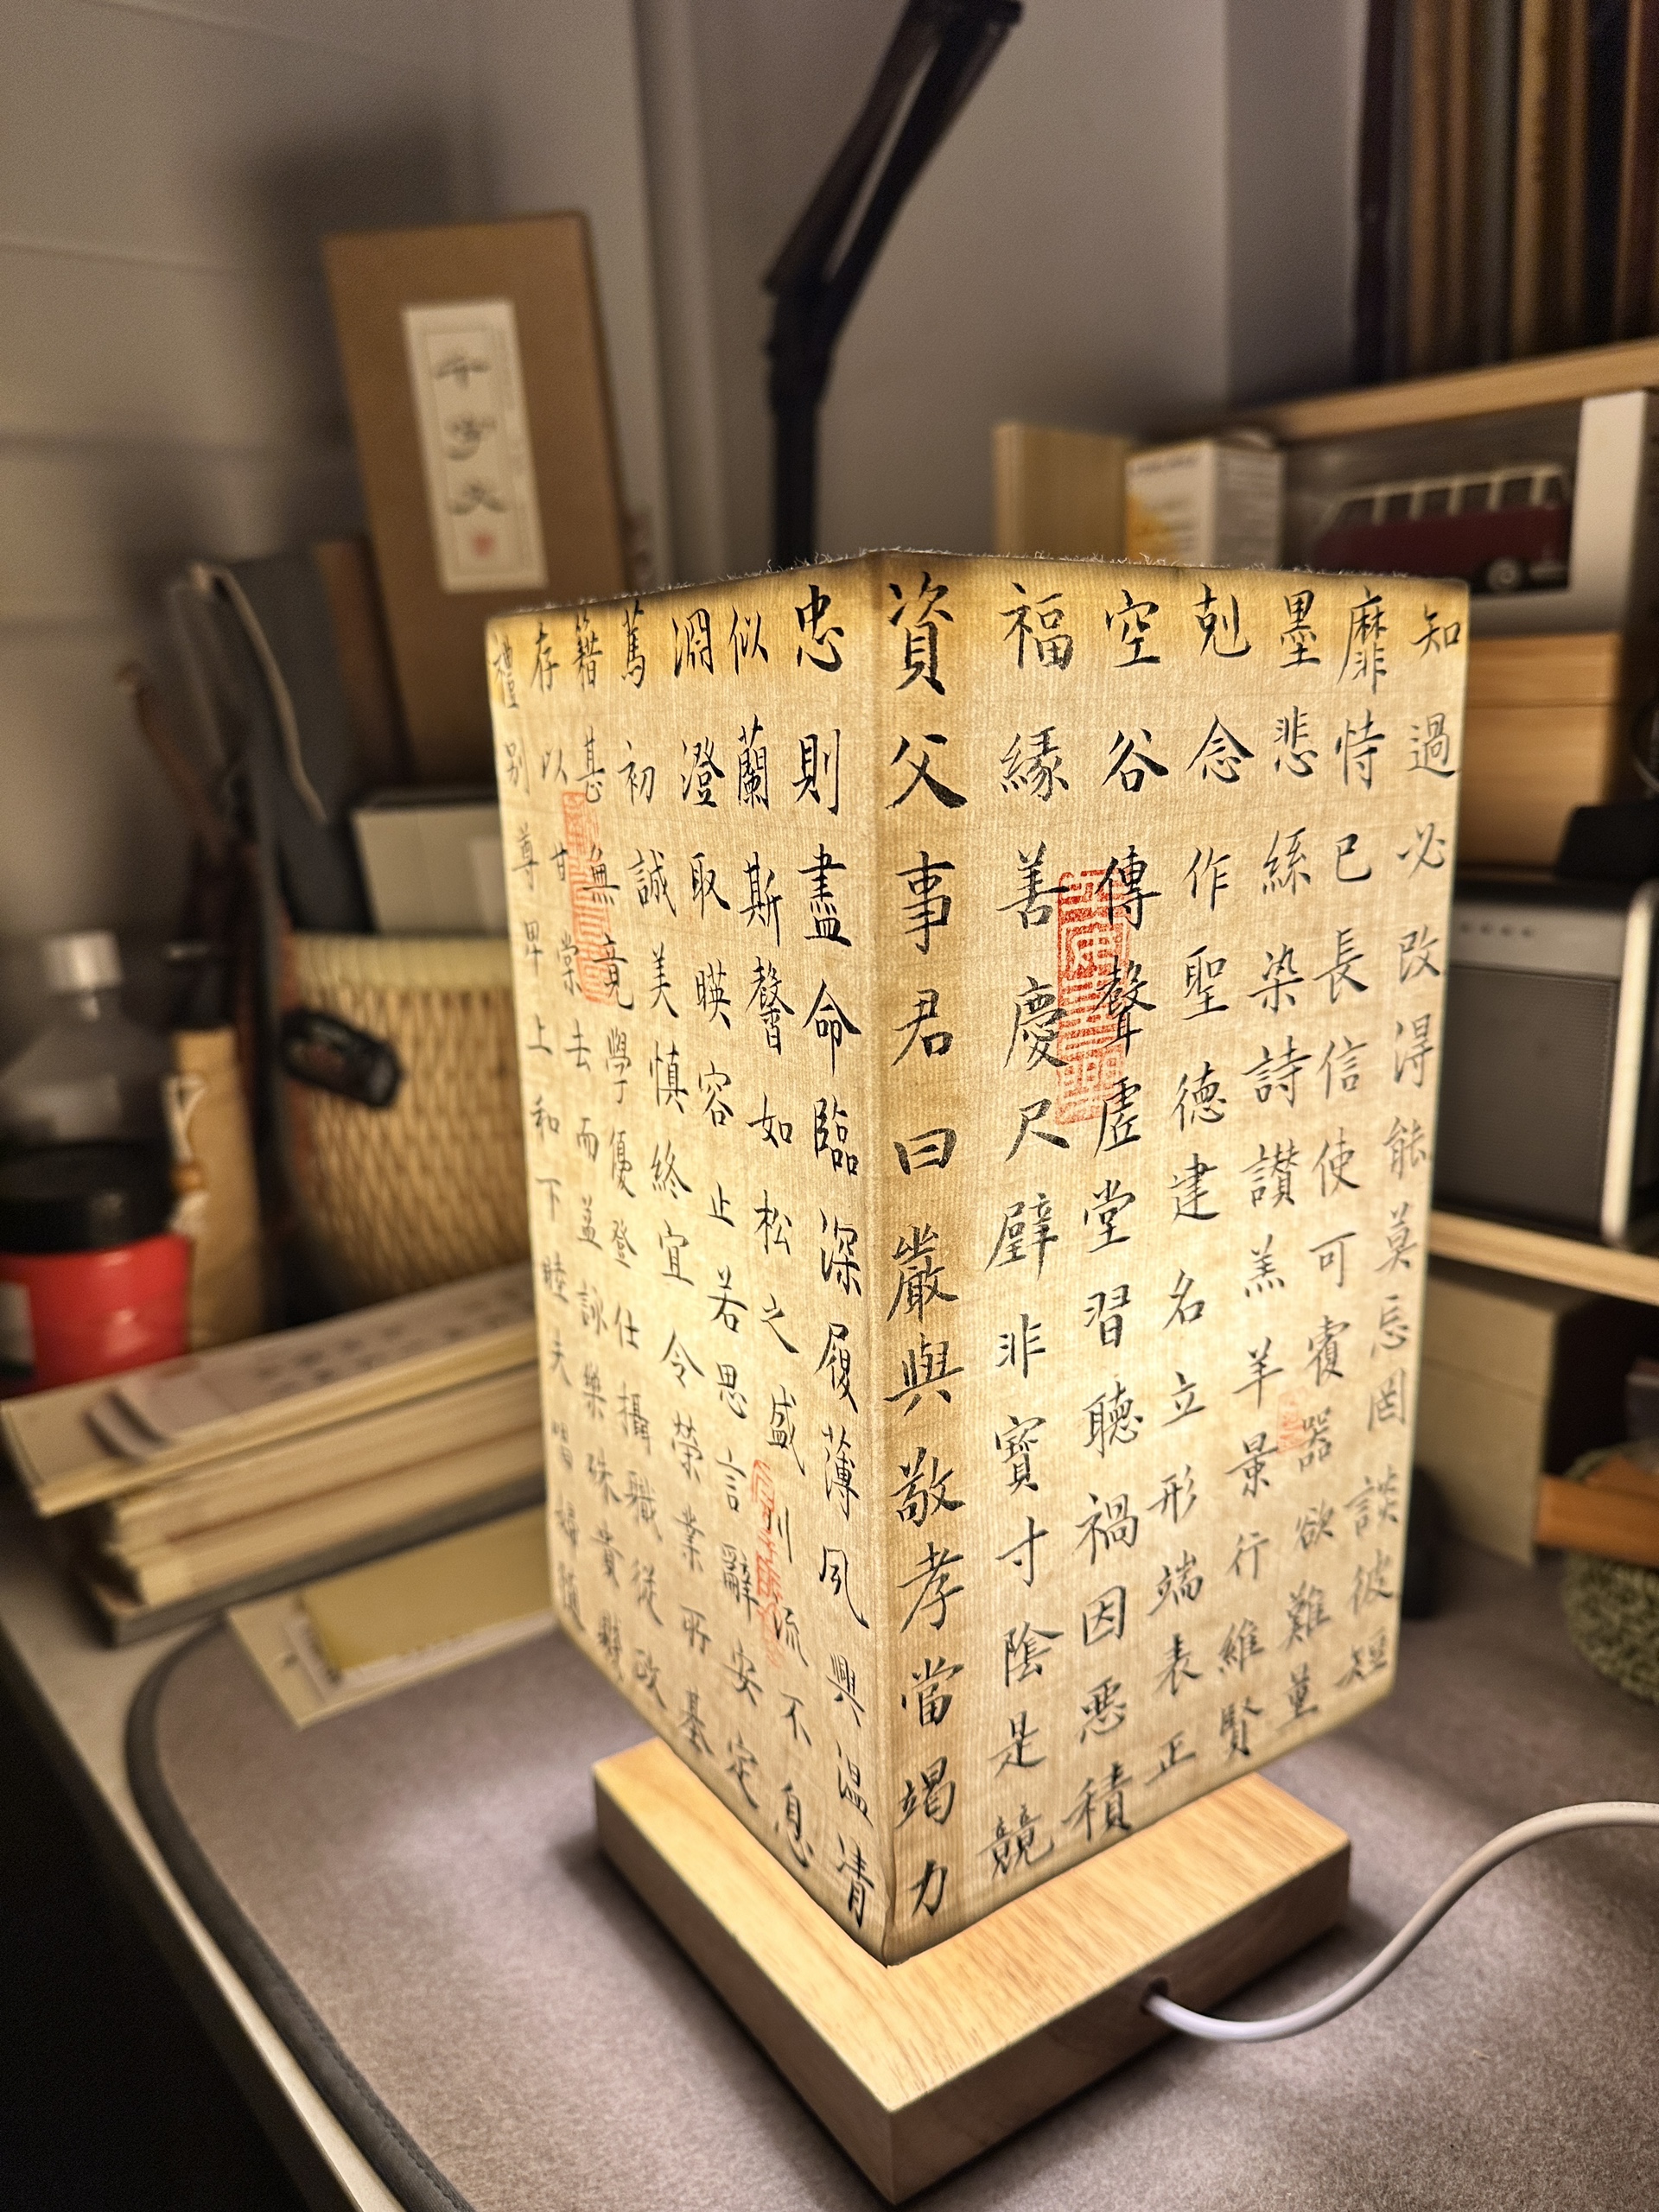 千字文
知過必改得能莫忘罔談彼短
靡恃已長信使可覆器欲難量
墨悲絲染詩讚羔羊景行維賢
剋念作聖德建名立形端表正
空谷傳聲虛堂習聽禍因惡積
福縁善慶尺璧非寶寸陰是競
資父事君曰嚴與敬孝當竭力
忠則盡命臨深履薄夙興温凊
似蘭斯馨如松之盛川流不息
淵澄取暎容止若思言辭安定
篤初誠美慎終宜令榮業所基
籍甚無竟學優登仕攝職從政
存以甘棠去而益詠樂殊貴賤
禮別尊卑上和下睦夫唱婦隨